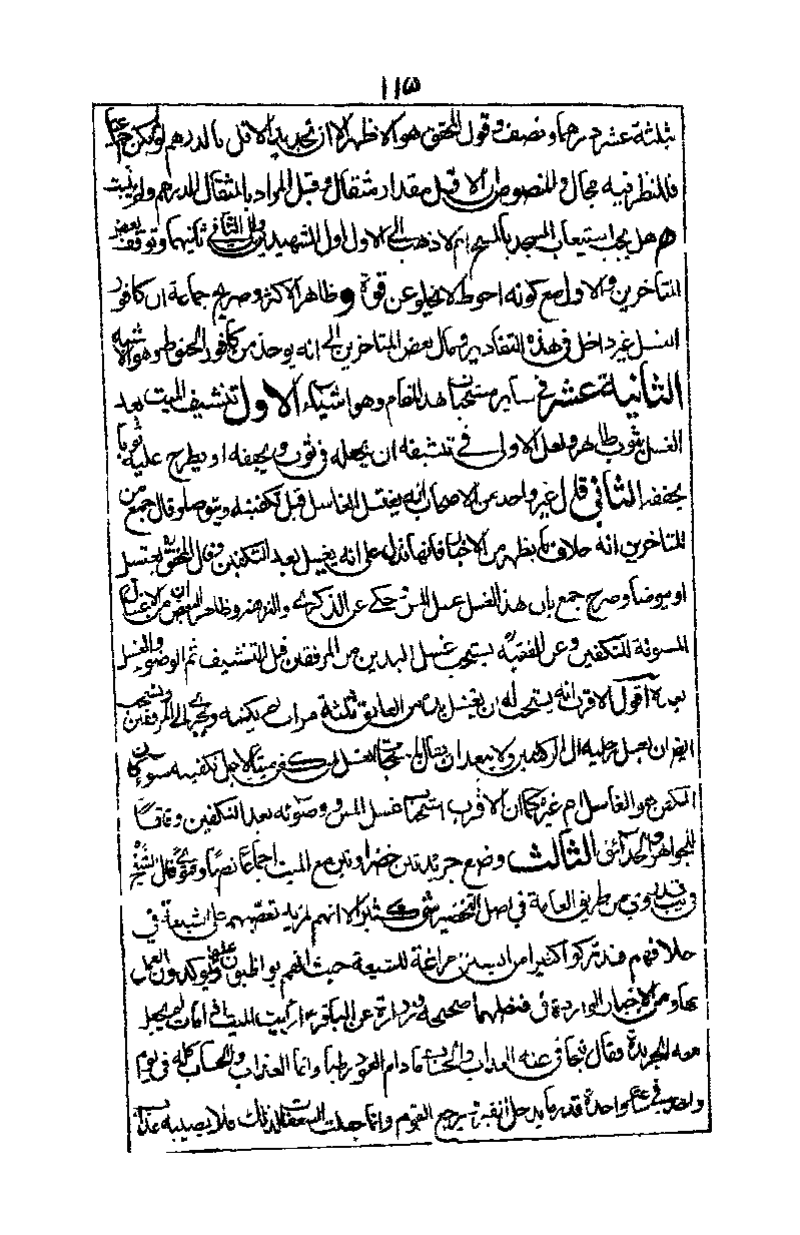 ١١٥
بثلثة عشر درهما ونصف وقول المحقق هو الاظهر الا ان تحديد الاقل بالدرهم
فللنظر فيه مجال في النصوص الاقل مقدار مثقال قبل المراد بالمثقال الدرهم ولم يثبت
هل يجب استيعاب المسجد بالمسح ام لا ذهب الى الاول اول الشهيدين والى الثاني ثانيهما وتوقف بعض
المتاخرين والاول مع كونه احوط لا يخلو عن قوة وظاهر الاكثر وصريح جماعة ان كافور
الغسل غير داخل في هذه التقادير وقال بعض المتاخرين الى انه يوخذ من كافور الحنوط وهو الاشبه
الثانية عشر في ساير مستحبات هذا المقام وهو اشياء الاول تنشيف الميت بعد
الغسل بثوب طاهر ولعل الاولى في تنشيفه ان يجعله في ثوب ويجففه او يطرح عليه ثوبا
يجففه الثاني قال غير واحد من الاصحاب انه يغتسل الغاسل قبل تكفينه ويتوضا وقال جمع من
المتاخرين انه خلاف ما يظهر من الاخبار فانها تدل على انه يغسل بعد التكفين وقال المحقق يغتسل
او يتوضا وصرح جمع بان هذا الغسل غسل المس حكي عن الذكرى وظاهر البعض انه من الاغسال
المسنونة للتكفين وعن الفقيه يستحب غسل اليدين من المرفقين قبل التنشيف ثم الوضوء والغسل
اقول الاقرب انه يستحب له ان يغسل يده من العاتق ثلثة مرات ثم يكفنه ويجزي الى المرفقين ويستحب
ايضا ان يغسل رجليه الى الركبتين ولا يبعد ان يقال باستحباب الغسل لمن كفن ميتا لاجل تكفينه سواء كان
المكفن هو الغاسل ام غيره كما ان الاقرب استحباب غسل المس ووضوئه بعد التكفين وفاقا
للجواهر والحدائق الثالث وضع جريدتين خضراوتين مع الميت اجماعا نصا وفتوى قال الشيخ
في يب قد روي من طريق العامة في اصل التخضير شيء كثير الا انهم لمزيد تعصبهم على الشيعة في
خلافهم قد تركوا كثيرا من السنن مراغمة للشيعة حيث انهم يواظبون عليها ويوكدون العمل
بها ومن الاخبار الواردة في فضلهما صحيحة زرارة عن الباقر ارأيت الميت اذا مات لم يجعل
معه الجريدة فقال يتجافى عنه العذاب والحساب ما دام العود رطبا وانما العذاب والحساب كله في يوم
واحد في ساعة واحدة قدر ما يدخل القبر ويرجع القوم وانما جعلت السعفتان لذلك فلا يصيبه عذاب